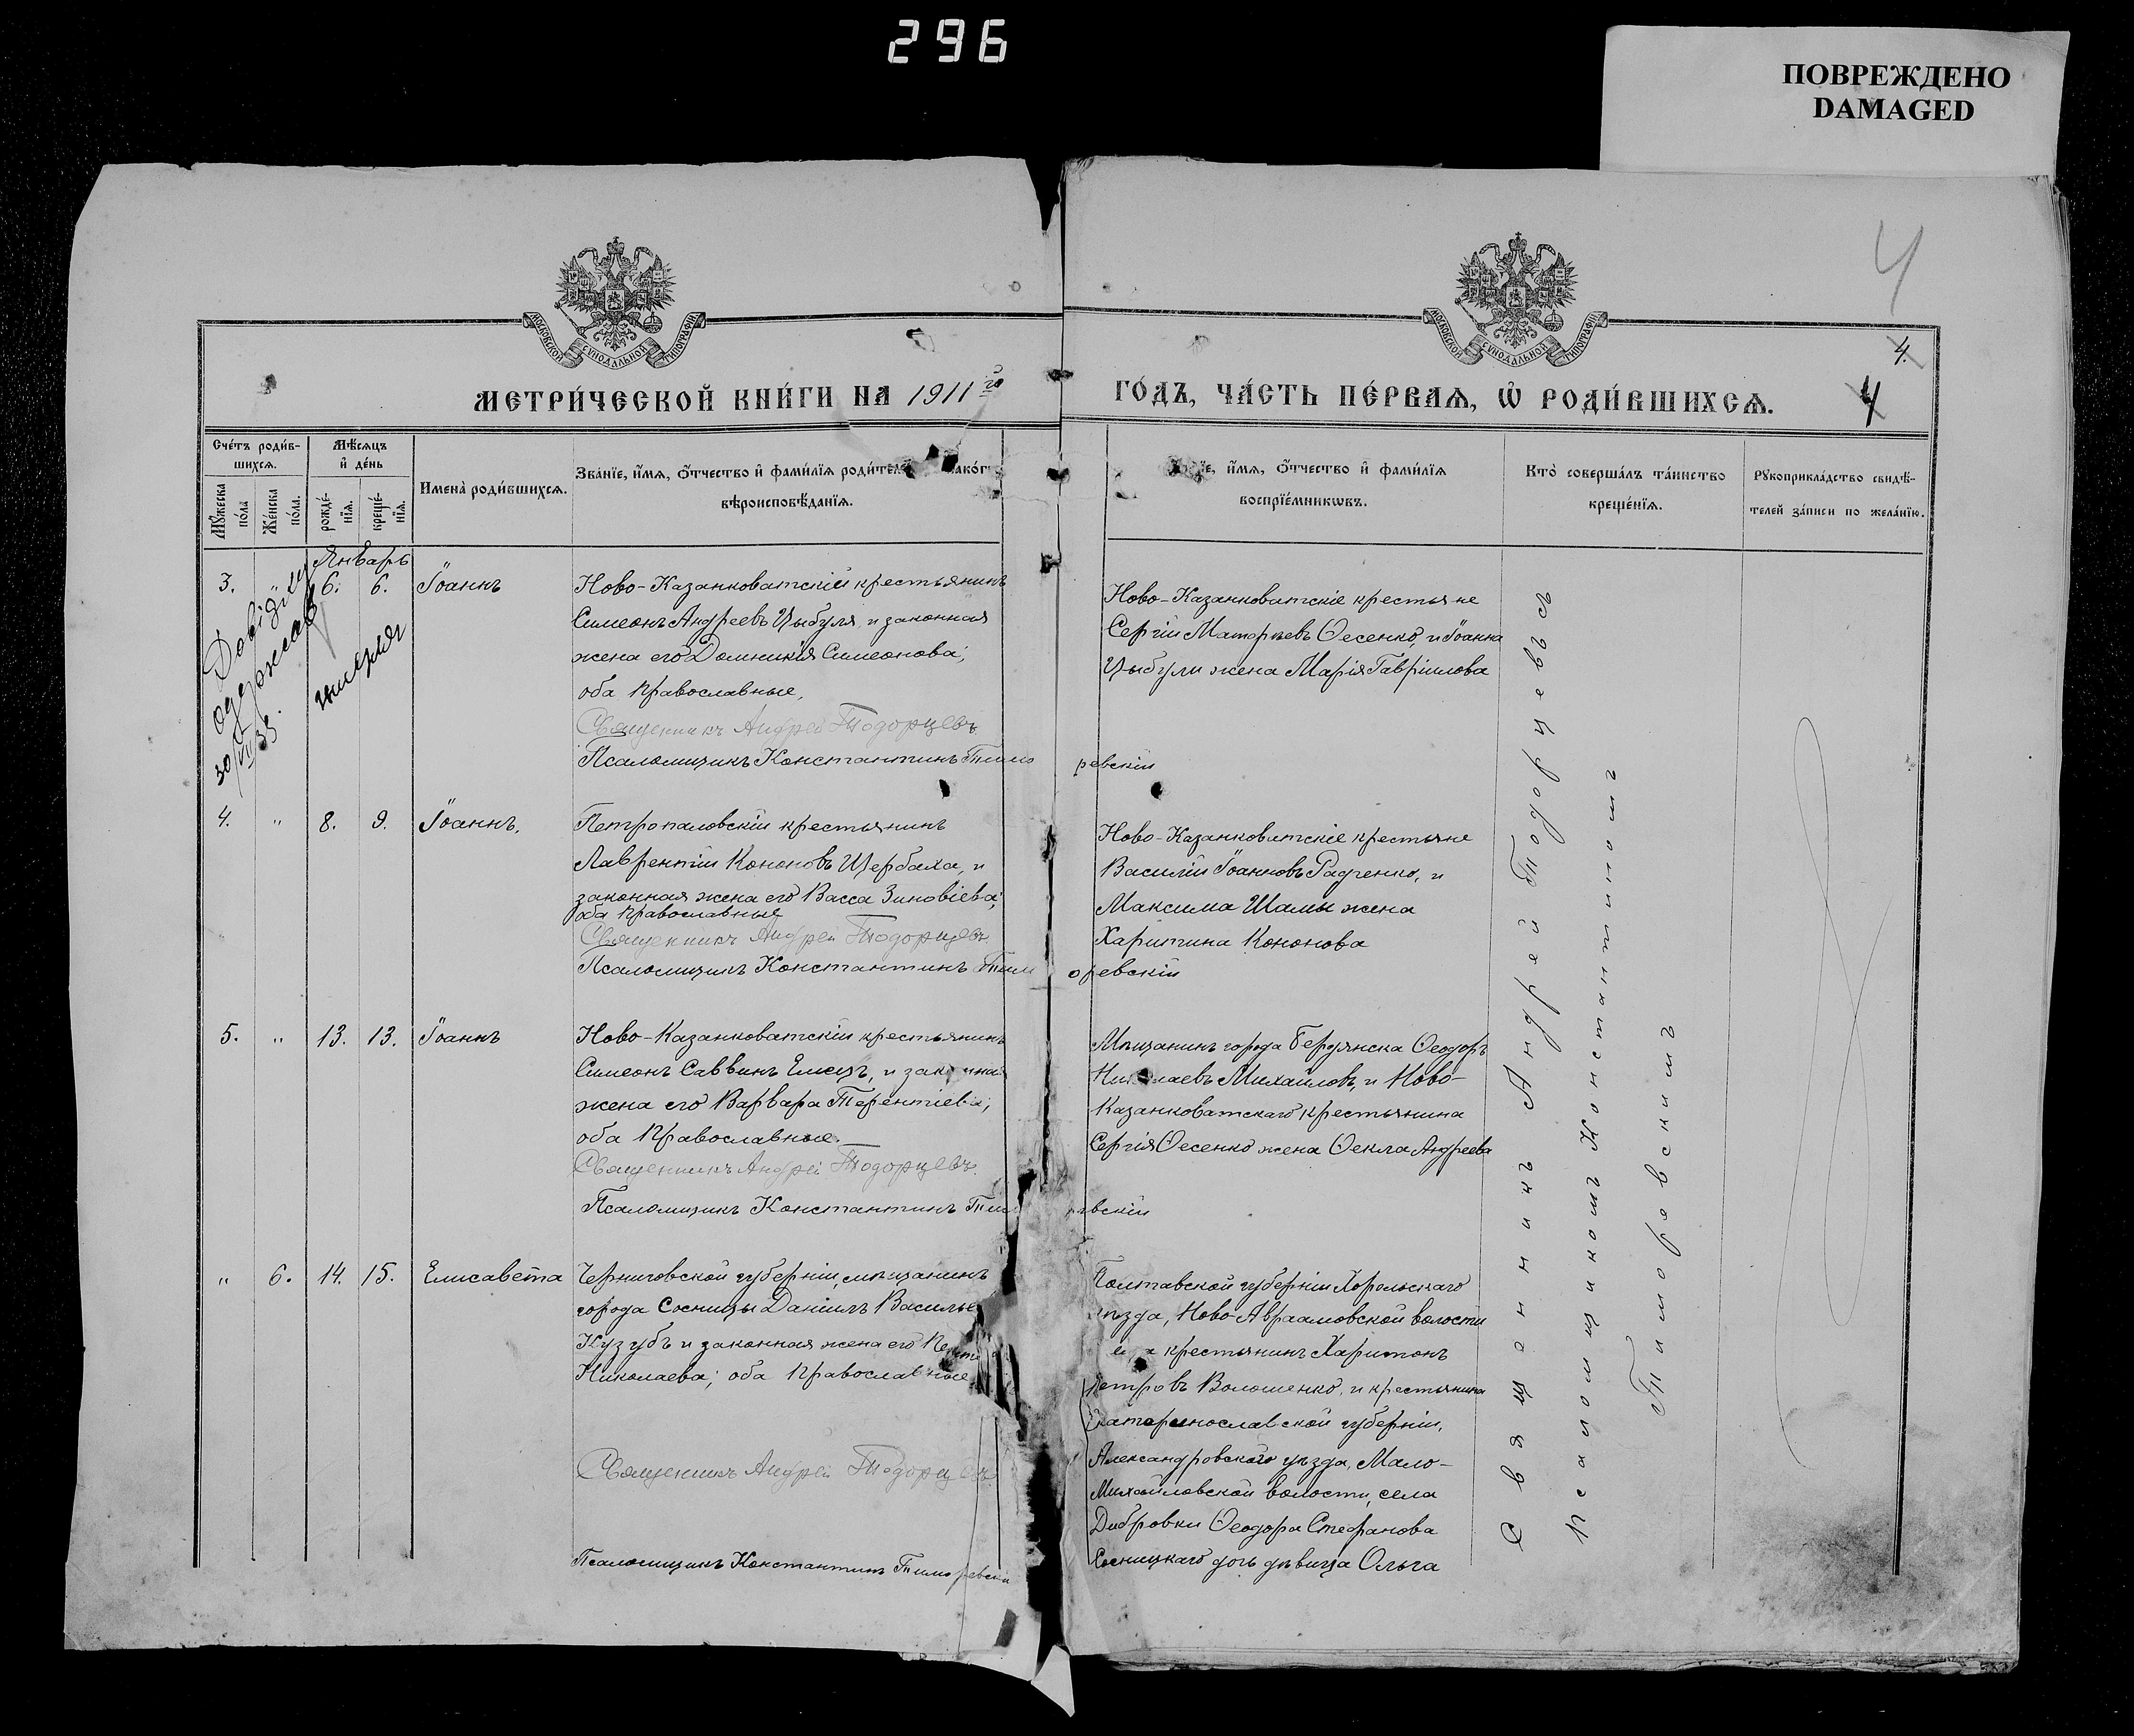 296
ПОВРЕЖДЕНО
DAMAGED
4
МОСКОВСКОЙ СУНОДАЛЬНОЙ ТИПОГРАФІИ
МОСКОВСКОЙ СУНОДАЛЬНОЙ ТИПОГРАФІИ
4.
МЕТРИ́ЧЕСКОЙ КНИ́ГИ НА 1911го
ГО́ДЪ, ЧА́СТЬ ПЕ́РВАѦ, Ѡ҆ РОДИ́ВШИХСѦ.
4
Сче́тъ роди́в-
шихсѧ.
Мѣ́сѧцъ
и҆ де́нь
Мꙋ́жеска
по́ла
Же́нска
по́ла.
рожде́-
нїѧ.
креще́-
нїѧ.
Имена̀ роди́вшихсѧ.
Зва́нїе, и҆́мѧ, ѻ҆́тчество и҆ фами́лїѧ роди́тел
како́г
вѣроисповѣ́данїѧ.
їе, и҆́мѧ, ѻ҆́тчество и҆ фами́лїѧ
воспрїе́мникѡвъ.
Кто̀ соверша́лъ та́инство
креще́нїѧ.
Рꙋкоприкла́дство свидѣ́-
телей за́писи по жела́нїю.
Январь
3. " 6. 6. Іоаннъ
Ново-Казанковатскій крестьянинъ
Симеонъ Андреевъ Цыбуля, и законная
жена его Домникія Симеонова;
оба Православные.
Священникъ Андрей Тодорцевъ
Псаломщикъ Константинъ Тимо ревскій
Ново-Казанковатскіе крестьяне
Сергій Матфеевъ Ѳесенко, и Іоанна
Цыбули жена Марія Гавріилова
Довідку
одержав
30/VI 35.
4. " 8. 9. Іоаннъ.
Петропаловскій крестьянинъ
Лаврентій Кононовъ Щербаха, и
законная жена его Васса Зиновіева;
оба Православные
Священникъ Андрей Тодорцевъ
Псаломщикъ Константинъ Тим оревскій
Ново-Казанковатскіе крестьяне
Василій Іоанновъ Радченко, и
Максима Шамы жена
Харитина Кононова
5. " 13. 13. Іоаннъ
Ново-Казанковатскій крестьянинъ
Симеонъ Саввинъ Елисцъ, и зак нна
жена его Варвара Терентіева;
оба Православные.
Священникъ Андрей Тодорцевъ.
Псаломщикъ Константинъ Тим ревскій
Мѣщанинъ города Бердянска Ѳеодоръ
Ни лаевъ Михайловъ, и Ново-
Казанковатскаго крестьянина
Сергія Ѳесенко жена Ѳекла Андреева
" 6. 14. 15. Елисавета
Черниговской губерніи, мѣщанинъ
города Сосницы Даніилъ Василье
Кузубъ и законная жена его
Николаева; оба Православные
Священникъ Андрей Тодорцевъ
Псаломщикъ Константинъ Тиморевскі
Полтавской губерніи Хорольскаго
ѣзда, Ново-Авраамовской волости
крестьянинъ Харитонъ
Петровъ Волошенко, и крестьянина
Екатеринославской губерніи,
Александровскаго уѣзда, Мало-
Михайловской волости, села
Дибровки Ѳеодора Стефанова
Сосницкаго дочь дѣвица Ольга
Священникъ Андрей Тодорцевъ съ
Псаломщикомъ Константиномъ
Тиморевскимъ